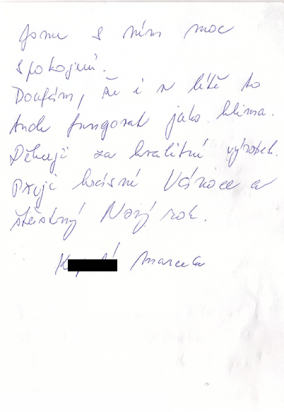 jsme s ním moc
spokojení.
Doufám, že i v létě to
bude fungovat jako klima.
Děkuji za kvalitní výrobek.
Přeji krásné Vánoce a
šťastný Nový rok.
Marcela